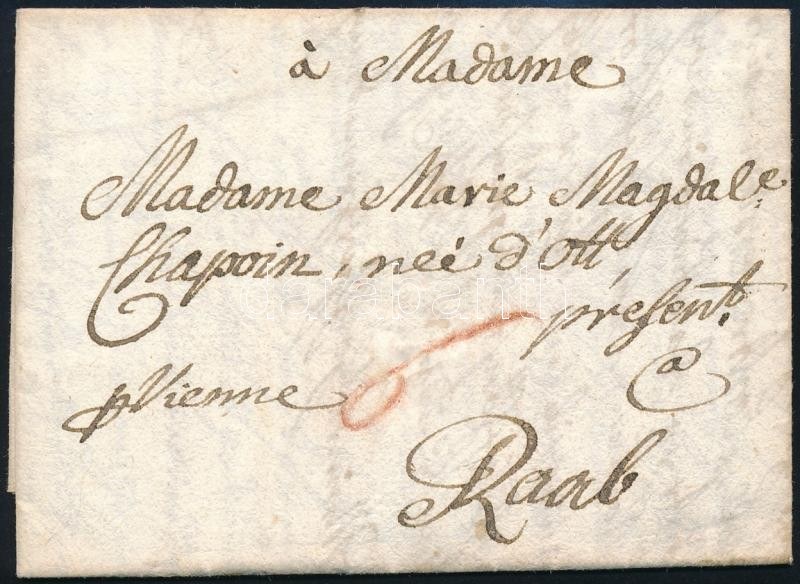 à Madame
Madame Marie Magdal.e
Chapoin, neé d'Ott,
present.t
a
pVienne 6
Raab